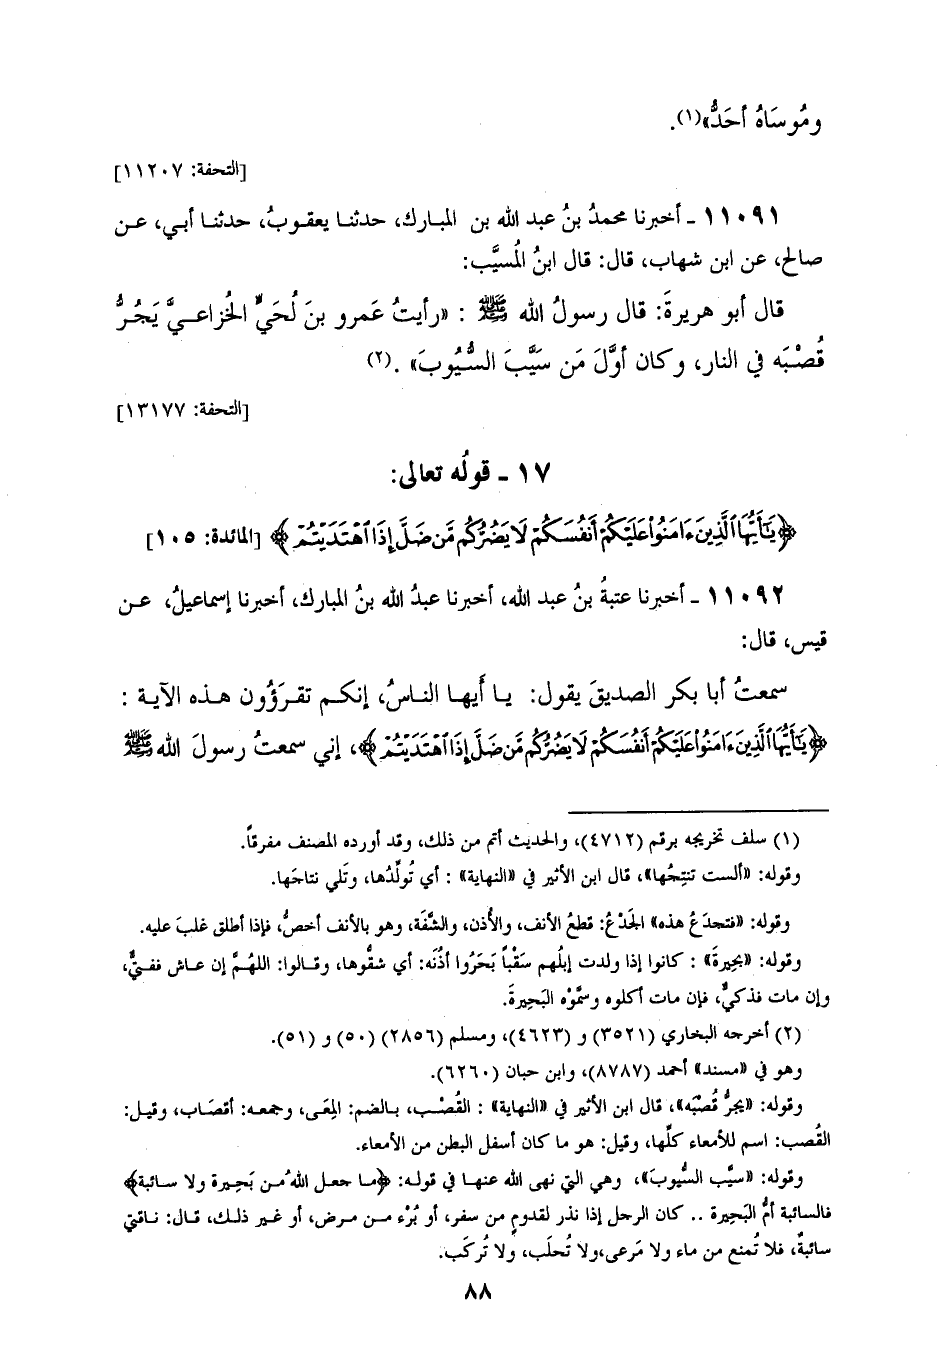 ومُوسَاهُ أحَدُّ»(١).
[التحفة: ١١٢٠٧]
١١٠٩١ ـ أخبرنا محمدُ بنُ عبد الله بن المبارك، حدثنا يعقوبُ، حدثنا أبي، عن
صالح، عن ابن شهاب، قال: قال ابنُ المُسيَّب:
قال أبو هريرةَ: قال رسولُ الله ﷺ : «رأيتُ عَمرو بنَ لُحَيٍّ الخُزاعيَّ يَجُرُّ
قُصْبَه في النار، وكان أوَّلَ مَن سَيَّبَ السُّيُوبَ» .(٢)
[التحفة: ١٣١٧٧]
١٧ ـ قولُه تعالى:
﴿يَٰٓأَيُّهَا ٱلَّذِينَ ءَامَنُوا۟ عَلَيْكُمْ أَنفُسَكُمْ لَا يَضُرُّكُم مَّن ضَلَّ إِذَا ٱهْتَدَيْتُمْ﴾ [المائدة: ١٠٥]
١١٠٩٢ ـ أخبرنا عتبةُ بنُ عبد الله، أخبرنا عبدُ الله بنُ المبارك، أخبرنا إسماعيلُ، عن
قيس، قال:
سمعتُ أبا بكر الصديقَ يقول: يا أَيها الناسُ، إنكم تقرَؤُون هذه الآية :
﴿يَٰٓأَيُّهَا ٱلَّذِينَ ءَامَنُوا۟ عَلَيْكُمْ أَنفُسَكُمْ لَا يَضُرُّكُم مَّن ضَلَّ إِذَا ٱهْتَدَيْتُمْ﴾، إني سمعتُ رسولَ الله ﷺ
(١) سلف تخريجه برقم (٤٧١٢)، والحديث أتم من ذلك، وقد أورده المصنف مفرقاً.
وقوله: «ألست تنتِجُها»، قال ابن الأثير في «النهاية» : أي تُولِّدُها، وتَلي نتاجَها.
وقوله: «فتجدَعُ هذه» الجَدْعُ: قطعُ الأنف، والأُذن، والشَّفَة، وهو بالأنف أخصُّ، فإذا أطلق غلبَ عليه.
وقوله: «بحيرةَ» : كانوا إذا ولدت إبلُهم سَقْباً بَحَرُوا أذُنَه: أي شقُّوها، وقالوا: اللهُمَّ إن عاش ففتيٌّ،
وإن مات فذكيٌّ، فإن مات أكلوه وسمَّوْه البَحِيرةَ.
(٢) أخرجه البخاري (٣٥٢١) و (٤٦٢٣)، ومسلم (٢٨٥٦) (٥٠) و (٥١).
وهو في «مسند» أحمد (٨٧٨٧)، وابن حبان (٦٢٦٠).
وقوله: «يجرُّ قُصْبَه»، قال ابن الأثير في «النهاية» : القُصْب، بالضم: المِعَى، وجمعه: أقصَاب، وقيل:
القُصب: اسم للأمعاء كلِّها، وقيل: هو ما كان أسفل البطن من الأمعاء.
وقوله: «سيَّب السُّيوبَ»، وهي التي نهى الله عنها في قوله: ﴿ما جعل اللهُ من بَحِيرة ولا سائبة﴾
فالسائبة أمُّ البَحِيرة .. كان الرجل إذا نذر لقدومٍ من سفر، أو بُرْء من مرض، أو غير ذلك، قال: ناقتي
سائبةٌ، فلا تُمنع من ماء ولا مَرعى،ولا تُحلَب، ولا تُركَب.
٨٨